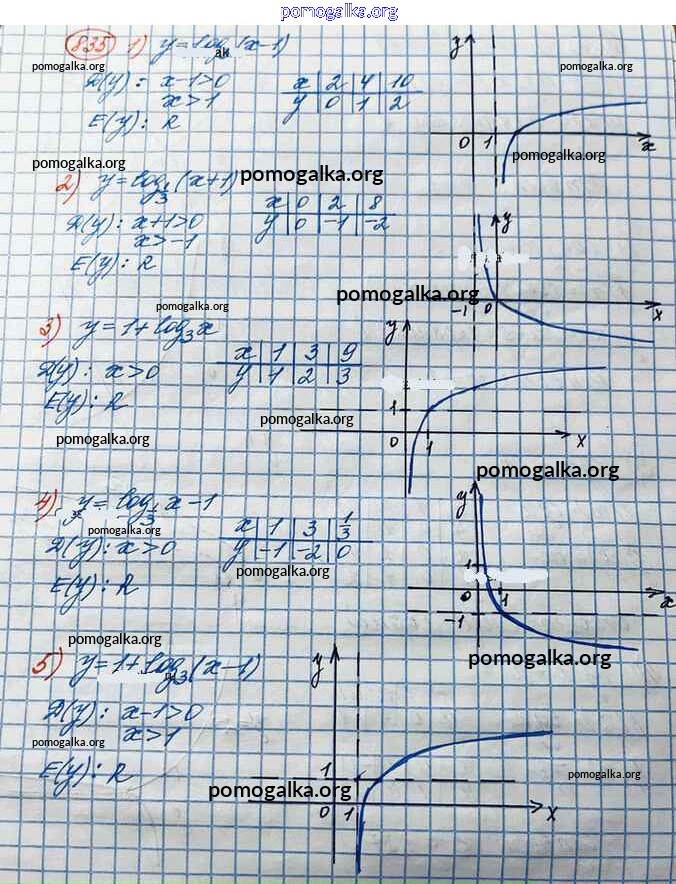 pomogalka.org
835 1) y = log (x-1)
pomogalka.org ак pomogalka.org
D(y): x-1>0
x>1
x 2 4 10
y 0 1 2
E(y): R
y
0 1 x
pomogalka.org pomogalka.org pomogalka.org
2) y = log 1/3 (x+1)
D(y): x+1>0
x>-1
x 0 2 8
y 0 -1 -2
E(y): R
y
-1 0 x
pomogalka.org
pomogalka.org
3) y = 1 + log3 x
D(y): x>0
x 1 3 9
y 1 2 3
E(y): R
y
1
0 1 x
pomogalka.org
pomogalka.org
pomogalka.org
4) y = log 1/3 x - 1
pomogalka.org
D(y): x>0
x 1 3 1/3
y -1 -2 0
pomogalka.org
E(y): R
y
1
0 1 x
-1
pomogalka.org
pomogalka.org
5) y = 1 + log3 (x-1)
D(y): x-1>0
x>1
pomogalka.org
E(y): R
y
1
0 1 x
pomogalka.org
pomogalka.org